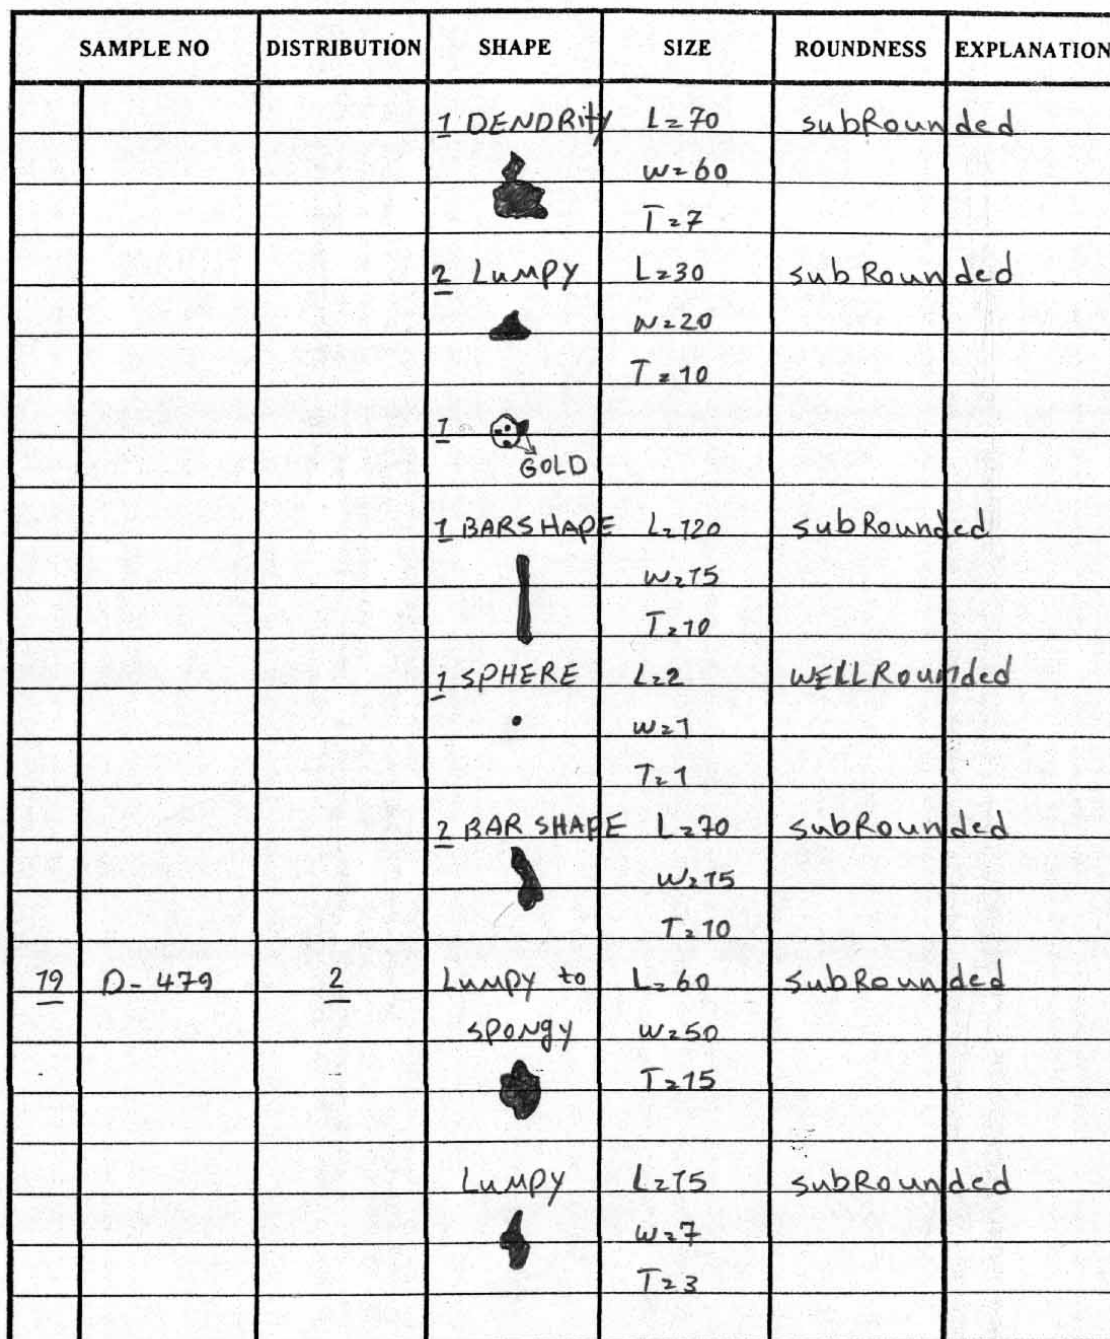 SAMPLE NO DISTRIBUTION SHAPE SIZE ROUNDNESS EXPLANATION
1 DENDRITY L=70 subRounded
w=60
T=7
2 Lumpy L=30 subRounded
w=20
T=10
1
GOLD
1 BARSHAPE L=120 subRounded
w=15
T=10
1 SPHERE L=2 WELLRounded
w=1
T=1
2 BAR SHAPE L=70 subRounded
w=15
T=10
19 D-479 2 Lumpy to L=60 subRounded
spongy w=50
T=15
Lumpy L=15 subRounded
w=7
T=3